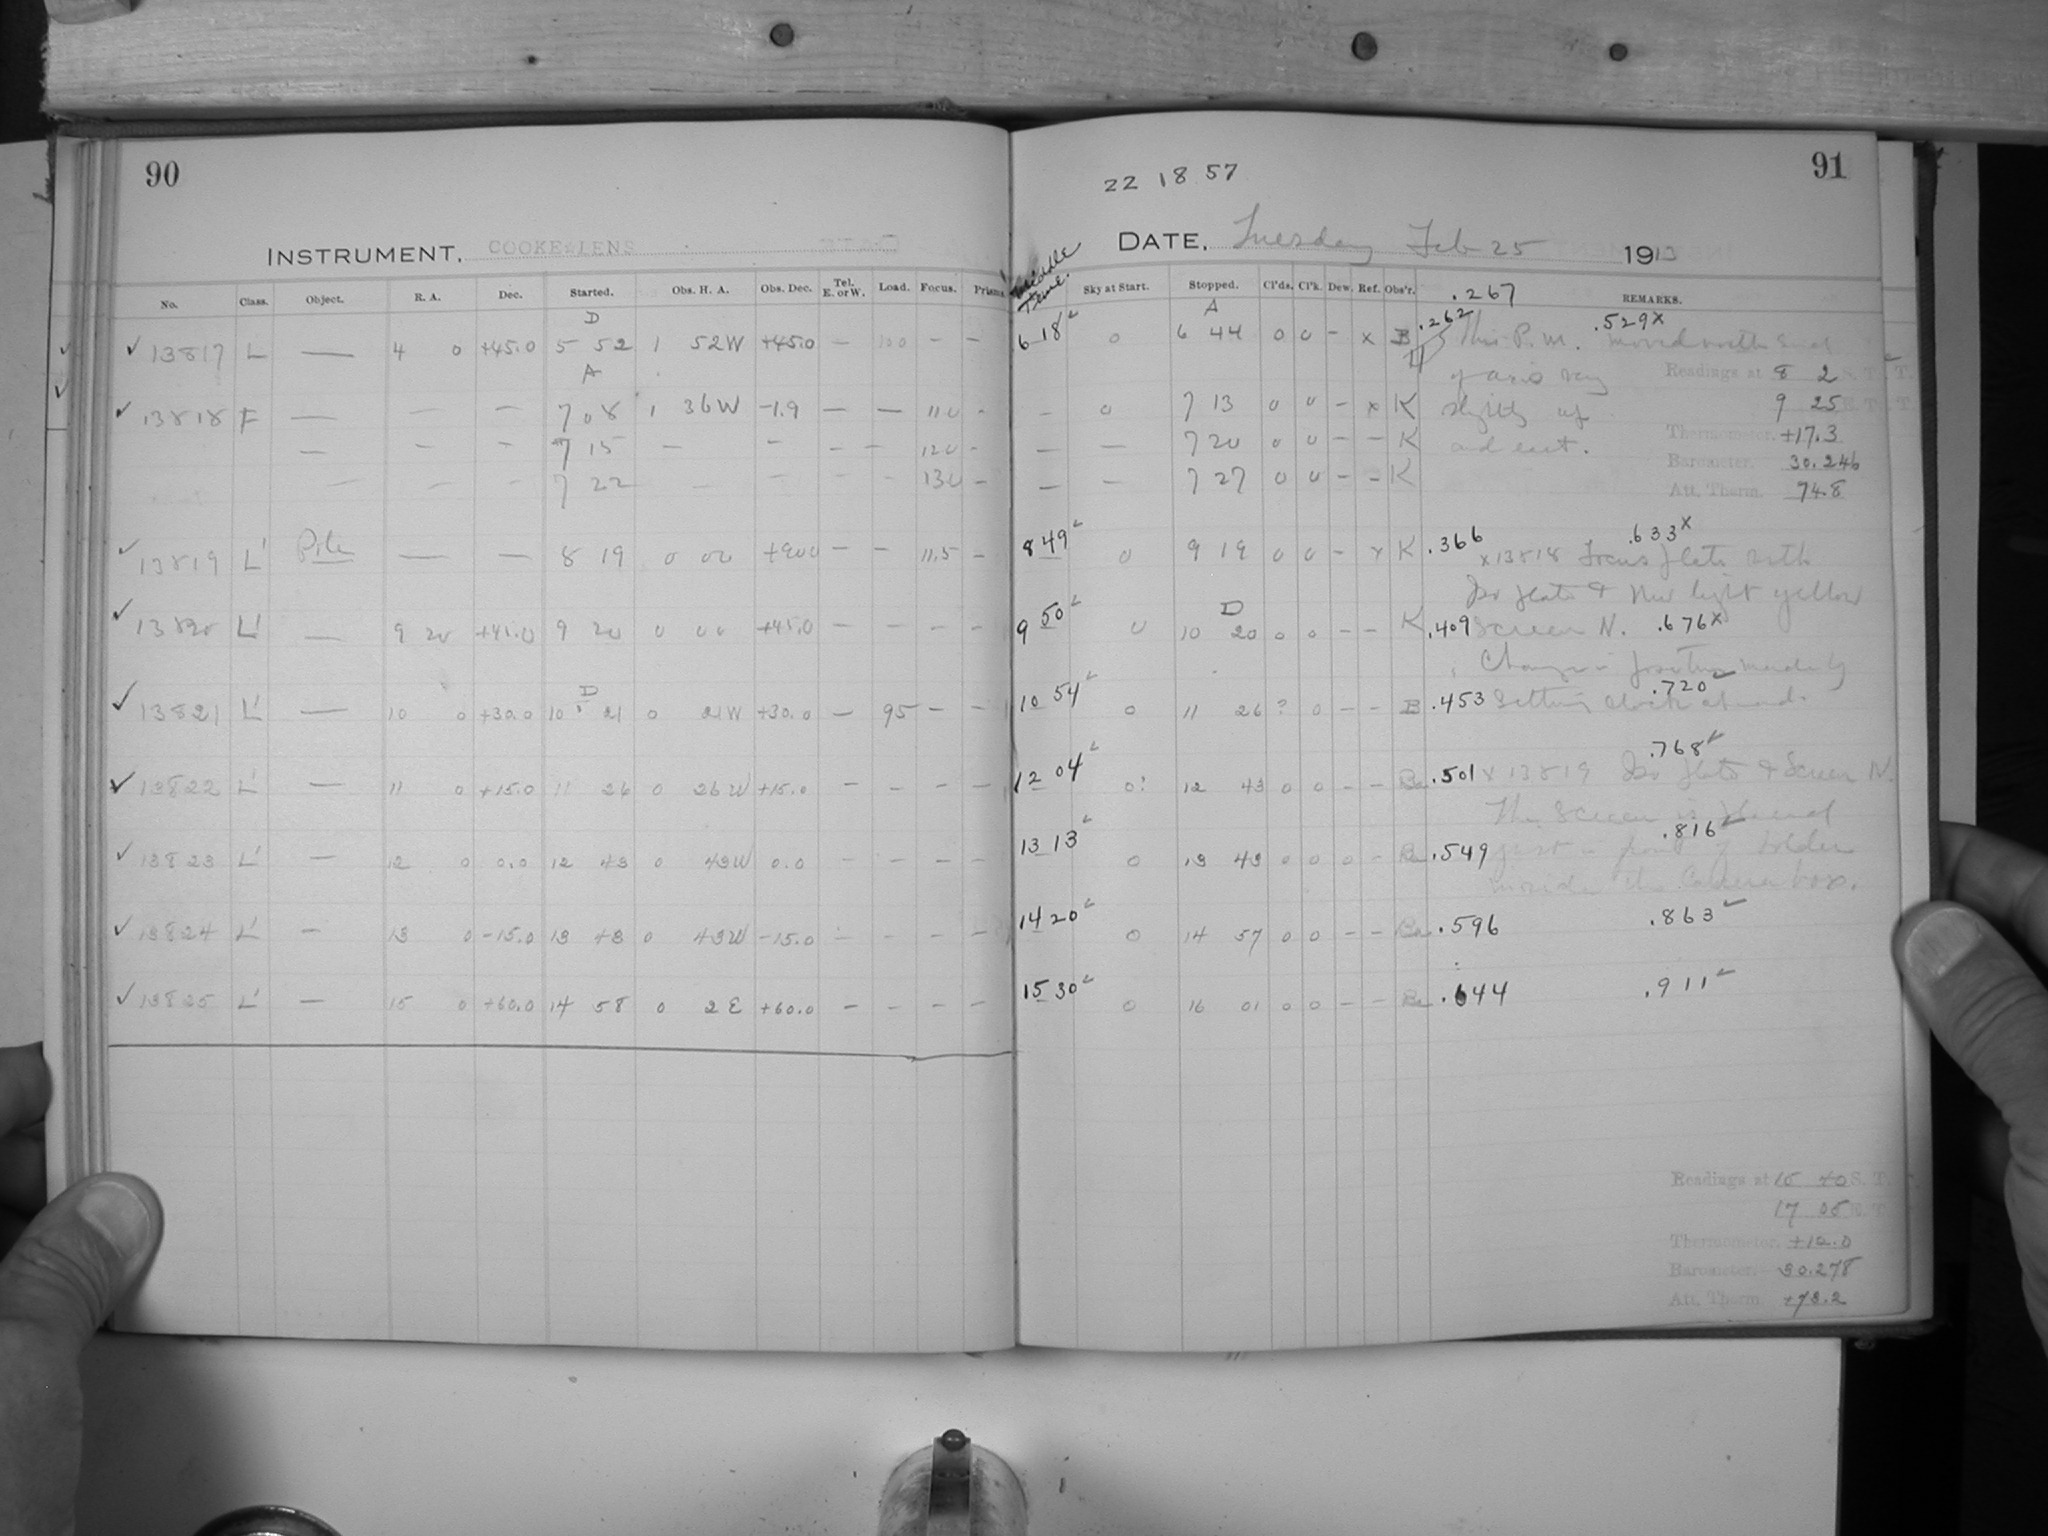 90
INSTRUMENT. COOKE LENS
No. Class. Object. R. A. Dec. Started. Obs. H. A. Obs. Dec. Tel. E. or W. Load. Focus. Prisms.
D
✓ 13817 L — 4 0 +45.0 5 52 1 52W +45.0 — 100 — —
A
✓ 13818 F — — — 7 08 1 36W -1.9 — — 110 -
— — — 7 15 — — — — 120 -
— — — 7 22 — — — — 130 -
✓ 13819 L' Pole — — 8 19 0 00 +90 0 — — 11.5 -
✓ 13820 L' — 9 20 +45.0 9 20 0 00 +45.0 — — — —
D
✓ 13821 L' — 10 0 +30.0 10 21 0 21W +30.0 — 95 — —
✓ 13822 L' — 11 0 +15.0 11 26 0 26W +15.0 — — — —
✓ 13823 L' — 12 0 0.0 12 43 0 43W 0.0 — — — —
✓ 13824 L' — 13 0 -15.0 13 43 0 43W -15.0 — — — —
✓ 13825 L' — 15 0 +60.0 14 58 0 2E +60.0 — — — —
22 18 57
91
DATE, Tuesday Feb 25 1913
Middle Time. Sky at Start. Stopped. Cl'ds. Cl'k. Dew. Ref. Obs'r. .267 REMARKS.
A
6 18 0 6 44 0 0 - x B .262 This P.M. .529x moved north end
of axis very Readings at 8 2 S. T.
- 0 7 13 0 0 - x K slightly up 9 25
— — 7 20 0 0 - - K and east. Thermometer. +17.3
— — 7 27 0 0 - - K Barometer. 30.246
Att. Therm. 74.8
8 49 0 9 19 0 0 - x K .366 .633x
x 13818 Focus plate with
Iso plate & New light yellow
D
9 50 0 10 20 0 0 - - K .409 Screen N. .676x
Change in position made by
10 54 0 11 26 ? 0 - - B .453 setting clock ahead. .720
12 04 0? 12 43 0 0 - - Be .501 x 13819 Iso plate & Screen N. .768
The Screen is placed
13 13 0 13 43 0 0 0 - Be .549 just in front of holder .816
inside the Camera box.
14 20 0 14 57 0 0 - - Be .596 .863
15 30 0 16 01 0 0 - - Be .644 .911
Readings at 15 40 S. T.
17 05 E. T.
Thermometer. +12.0
Barometer. 30.278
Att. Therm +73.2